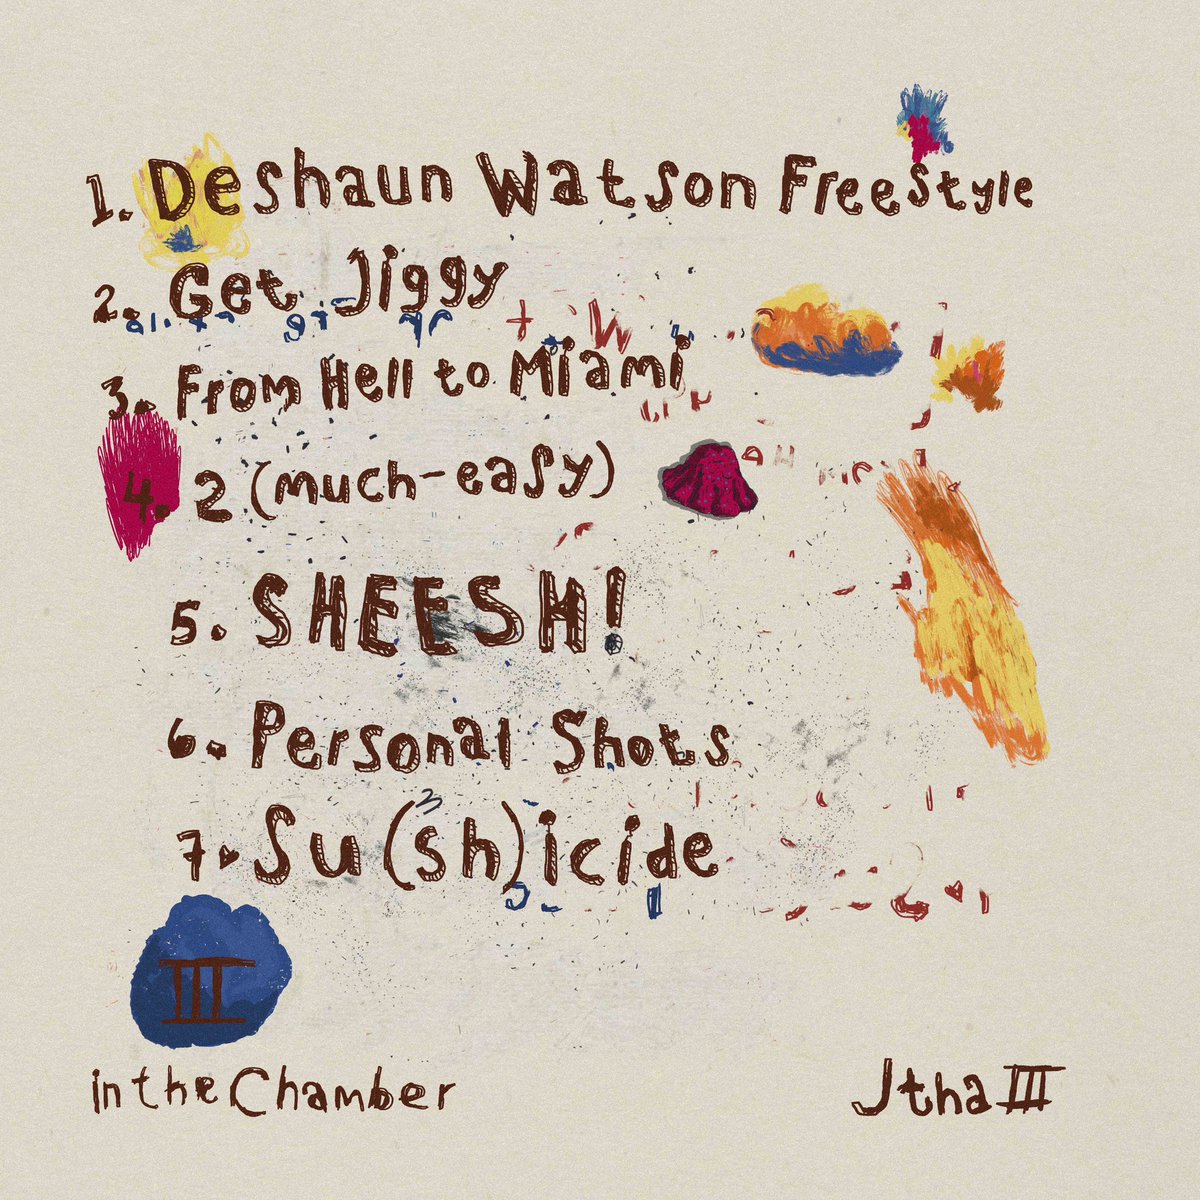 1. Deshaun Watson Freestyle
2. Get Jiggy
3. From Hell to Miami
4. 2 (much-easy)
5. SHEESH!
6. Personal Shots
7. Su(sh)icide
III
in the Chamber
Jtha III